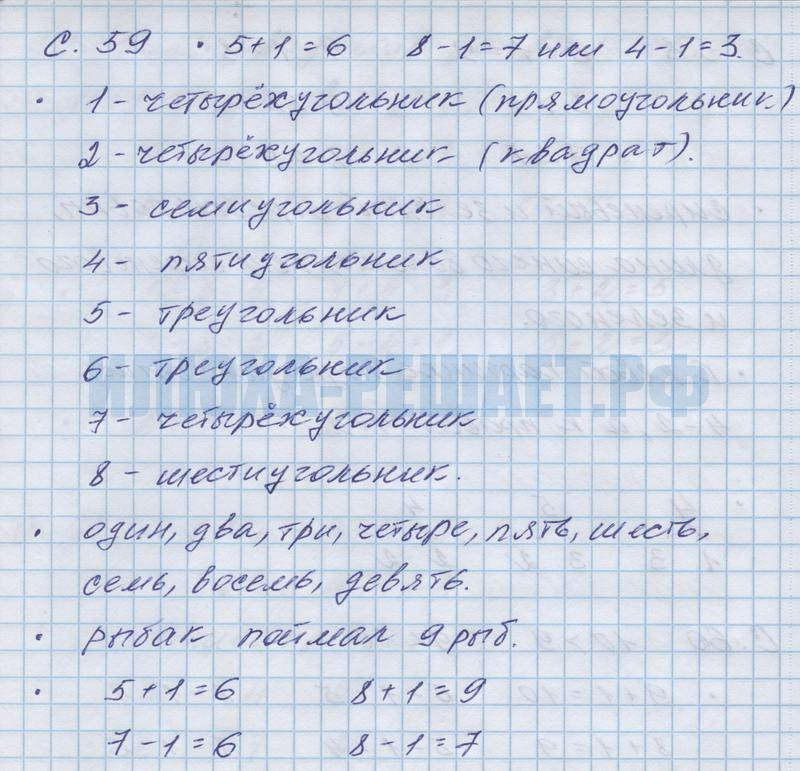 С. 59 • 5+1=6 8-1=7 или 4-1=3.
• 1 - четырёхугольник (прямоугольник)
2 - четырёхугольник (квадрат).
3 - семиугольник
4 - пятиугольник
5 - треугольник
6 - треугольник
ИЛЮХА-РЕШАЕТ.РФ
7 - четырёхугольник
8 - шестиугольник.
• один, два, три, четыре, пять, шесть,
семь, восемь, девять.
• рыбак поймал 9 рыб.
• 5+1=6 8+1=9
7-1=6 8-1=7